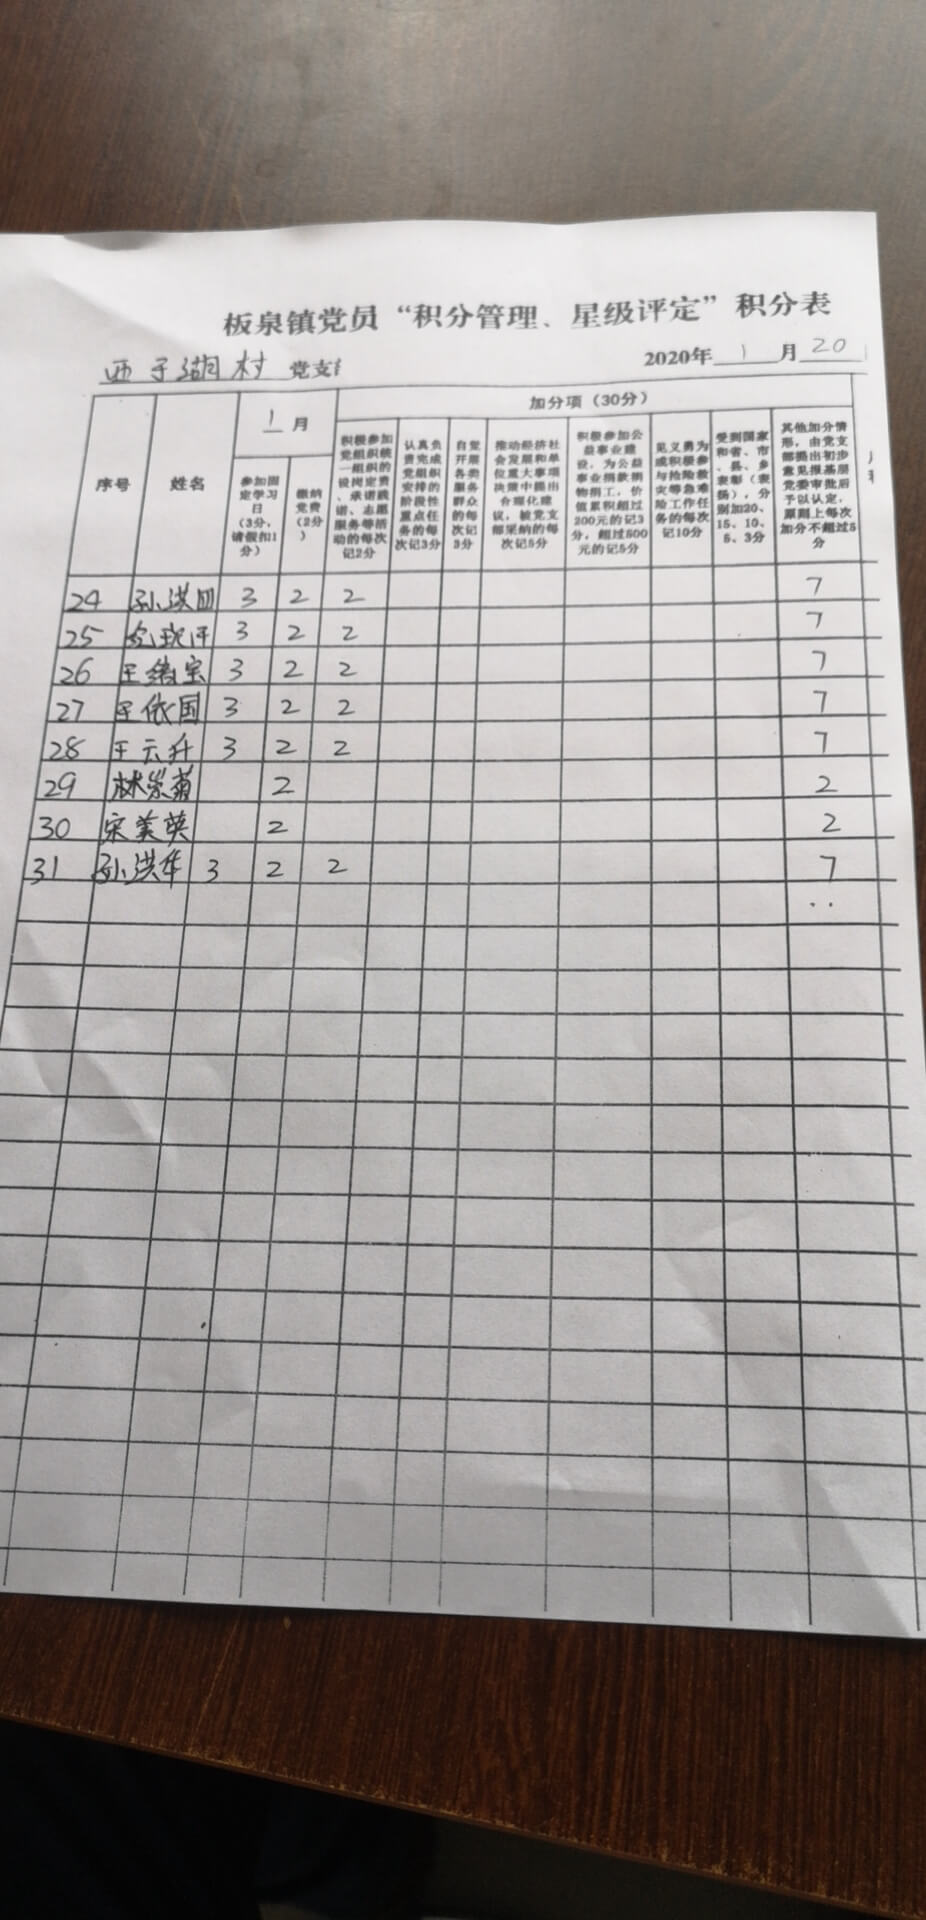 板泉镇党员“积分管理、星级评定”积分表
西子湖村 党支
2020年 1 月 20
序号 姓名 1 月 加分项（30分）
参加固定学习日（3分，请假扣1分）
缴纳党费（2分）
积极参加党组织统一组织的设岗定责、承诺践诺、志愿服务等活动的每次记2分
认真负责完成党组织安排的阶段性重点任务的每次记3分
自觉开展各类服务群众的每次记3分
推动经济社会发展和单位重大事项决策中提出合理化建议，被党支部采纳的每次记5分
积极参加公益事业建设，为公益事业捐款捐物捐工，价值累积超过200元的记3分，超过500元的记5分
见义勇为或积极参与抢险救灾等急难险工作任务的每次记10分
受到国家和省、市、县、乡表彰（表扬），分别加20、15、10、5、3分
其他加分情形，由党支部提出初步意见报基层党委审批后予以认定，原则上每次加分不超过5分
24 孙洪四 3 2 2 7
25 3 2 2 7
26 王绪宝 3 2 2 7
27 王依国 3 2 2 7
28 王云升 3 2 2 7
29 林崇菊 2 2
30 宋美英 2 2
31 孙洪华 3 2 2 7